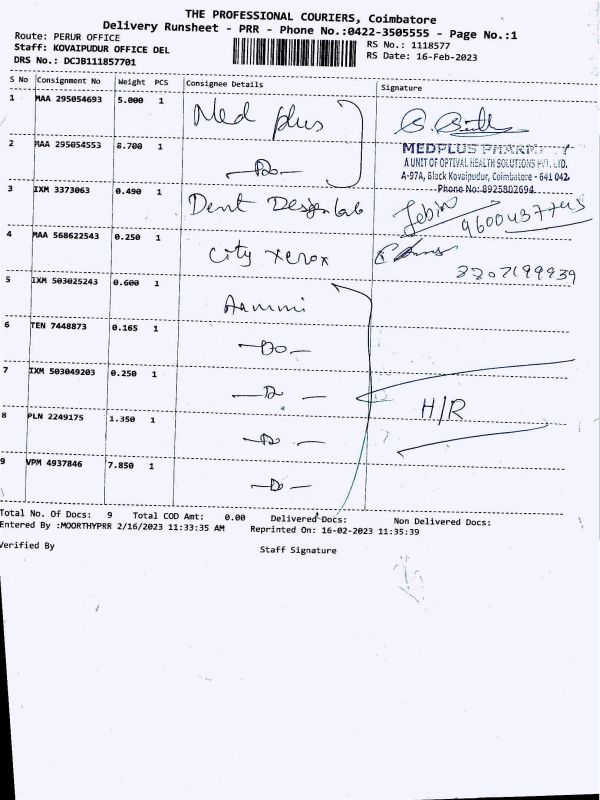 THE PROFESSIONAL COURIERS, Coimbatore
Delivery Runsheet - PRR - Phone No.:0422-3505555 - Page No.:1
Route: PERUR OFFICE
Staff: KOVAIPUDUR OFFICE DEL
DRS No.: DCJB111857701
RS No.: 1118577
RS Date: 16-Feb-2023
S No Consignment No Weight PCS Consignee Details Signature
1 MAA 295054693 5.000 1 Med plus
2 MAA 295054553 8.700 1 -Do-
MEDPLUS PHARMACY
A UNIT OF OPTIVAL HEALTH SOLUTIONS PVT. LTD.
A-97A, Block Kovaipudur, Coimbatore - 641 042.
Phone No: 8925802694
3 IXM 3373063 0.490 1 Dent Design lab Jebin
4 MAA 568622543 0.250 1 City xerox 8207199939
5 IXM 503025243 0.600 1
6 TEN 7448873 0.165 1 -Do-
7 IXM 503049203 0.250 1 -Do- H/R
8 PLN 2249175 1.350 1 -Do-
9 VPM 4937846 7.850 1 -Do-
Total No. Of Docs: 9 Total COD Amt: 0.00 Delivered Docs: Non Delivered Docs:
Entered By :MOORTHYPRR 2/16/2023 11:33:35 AM Reprinted On: 16-02-2023 11:35:39
Verified By Staff Signature